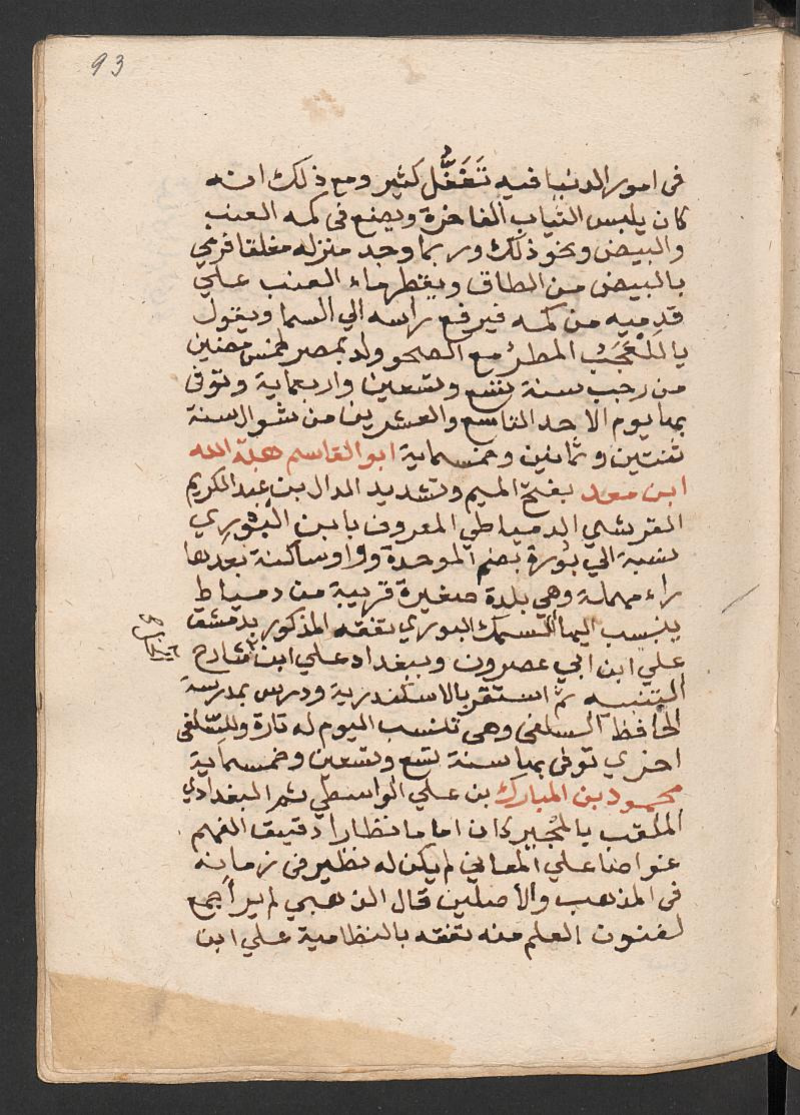 93
فى امور الدنيا فيه تَغَفُّل كثير ومع ذلك انه
كان يلبس الثياب الفاخرة ويضع فى كمه العنب
والبيض ونحو ذلك وربما وجد منزله مغلقا فرمي
بالبيض من الطاق ويقطر ماء العنب علي
قدميه من كمه فيرفع راسه الي السما ويقول
ياللعَجَب المطر مع الصحو ولد بمصر لخمس مضين
من رجب سنة تسع وتسعين واربعماية وتوفى
بها يوم الاحد التاسع والعشرين من شوال سنة
ثنتين وثمانين وخمسماية ابو القاسم هبة الله
ابن معد بفتح الميم وتشديد الدال بن عبد الكريم
القرشي الدمياطي المعروف بابن البوري
نسبة الي بُورة بضم الموحدة وواو ساكنة بعدها
راء مهملة وهي بلدة صغيرة قريبة من دمياط
ينسب اليها السمك البوري تفقه المذكور بدمشق
علي ابن ابي عصرون وببغداد علي ابن شارح
الخل صح
التنبيه ثم استقر بالاسكندرية ودرس بمدرسة
الحافظ السلفى وهى تنسب اليوم له تارة وللسلفى
اخري توفى بها سنة تسع وتسعين وخمسماية
محمود بن المبارك بن علي الواسطي ثم البغدادي
الملقب بالمجير كان اماما نظارا دقيق الفهم
غواصا علي المعاني لم يكن له نظير فى زمانه
فى المذهب والاصلين قال الذهبي لم ير اجمع
لفنون العلم منه تفقه بالنظامية علي ابن